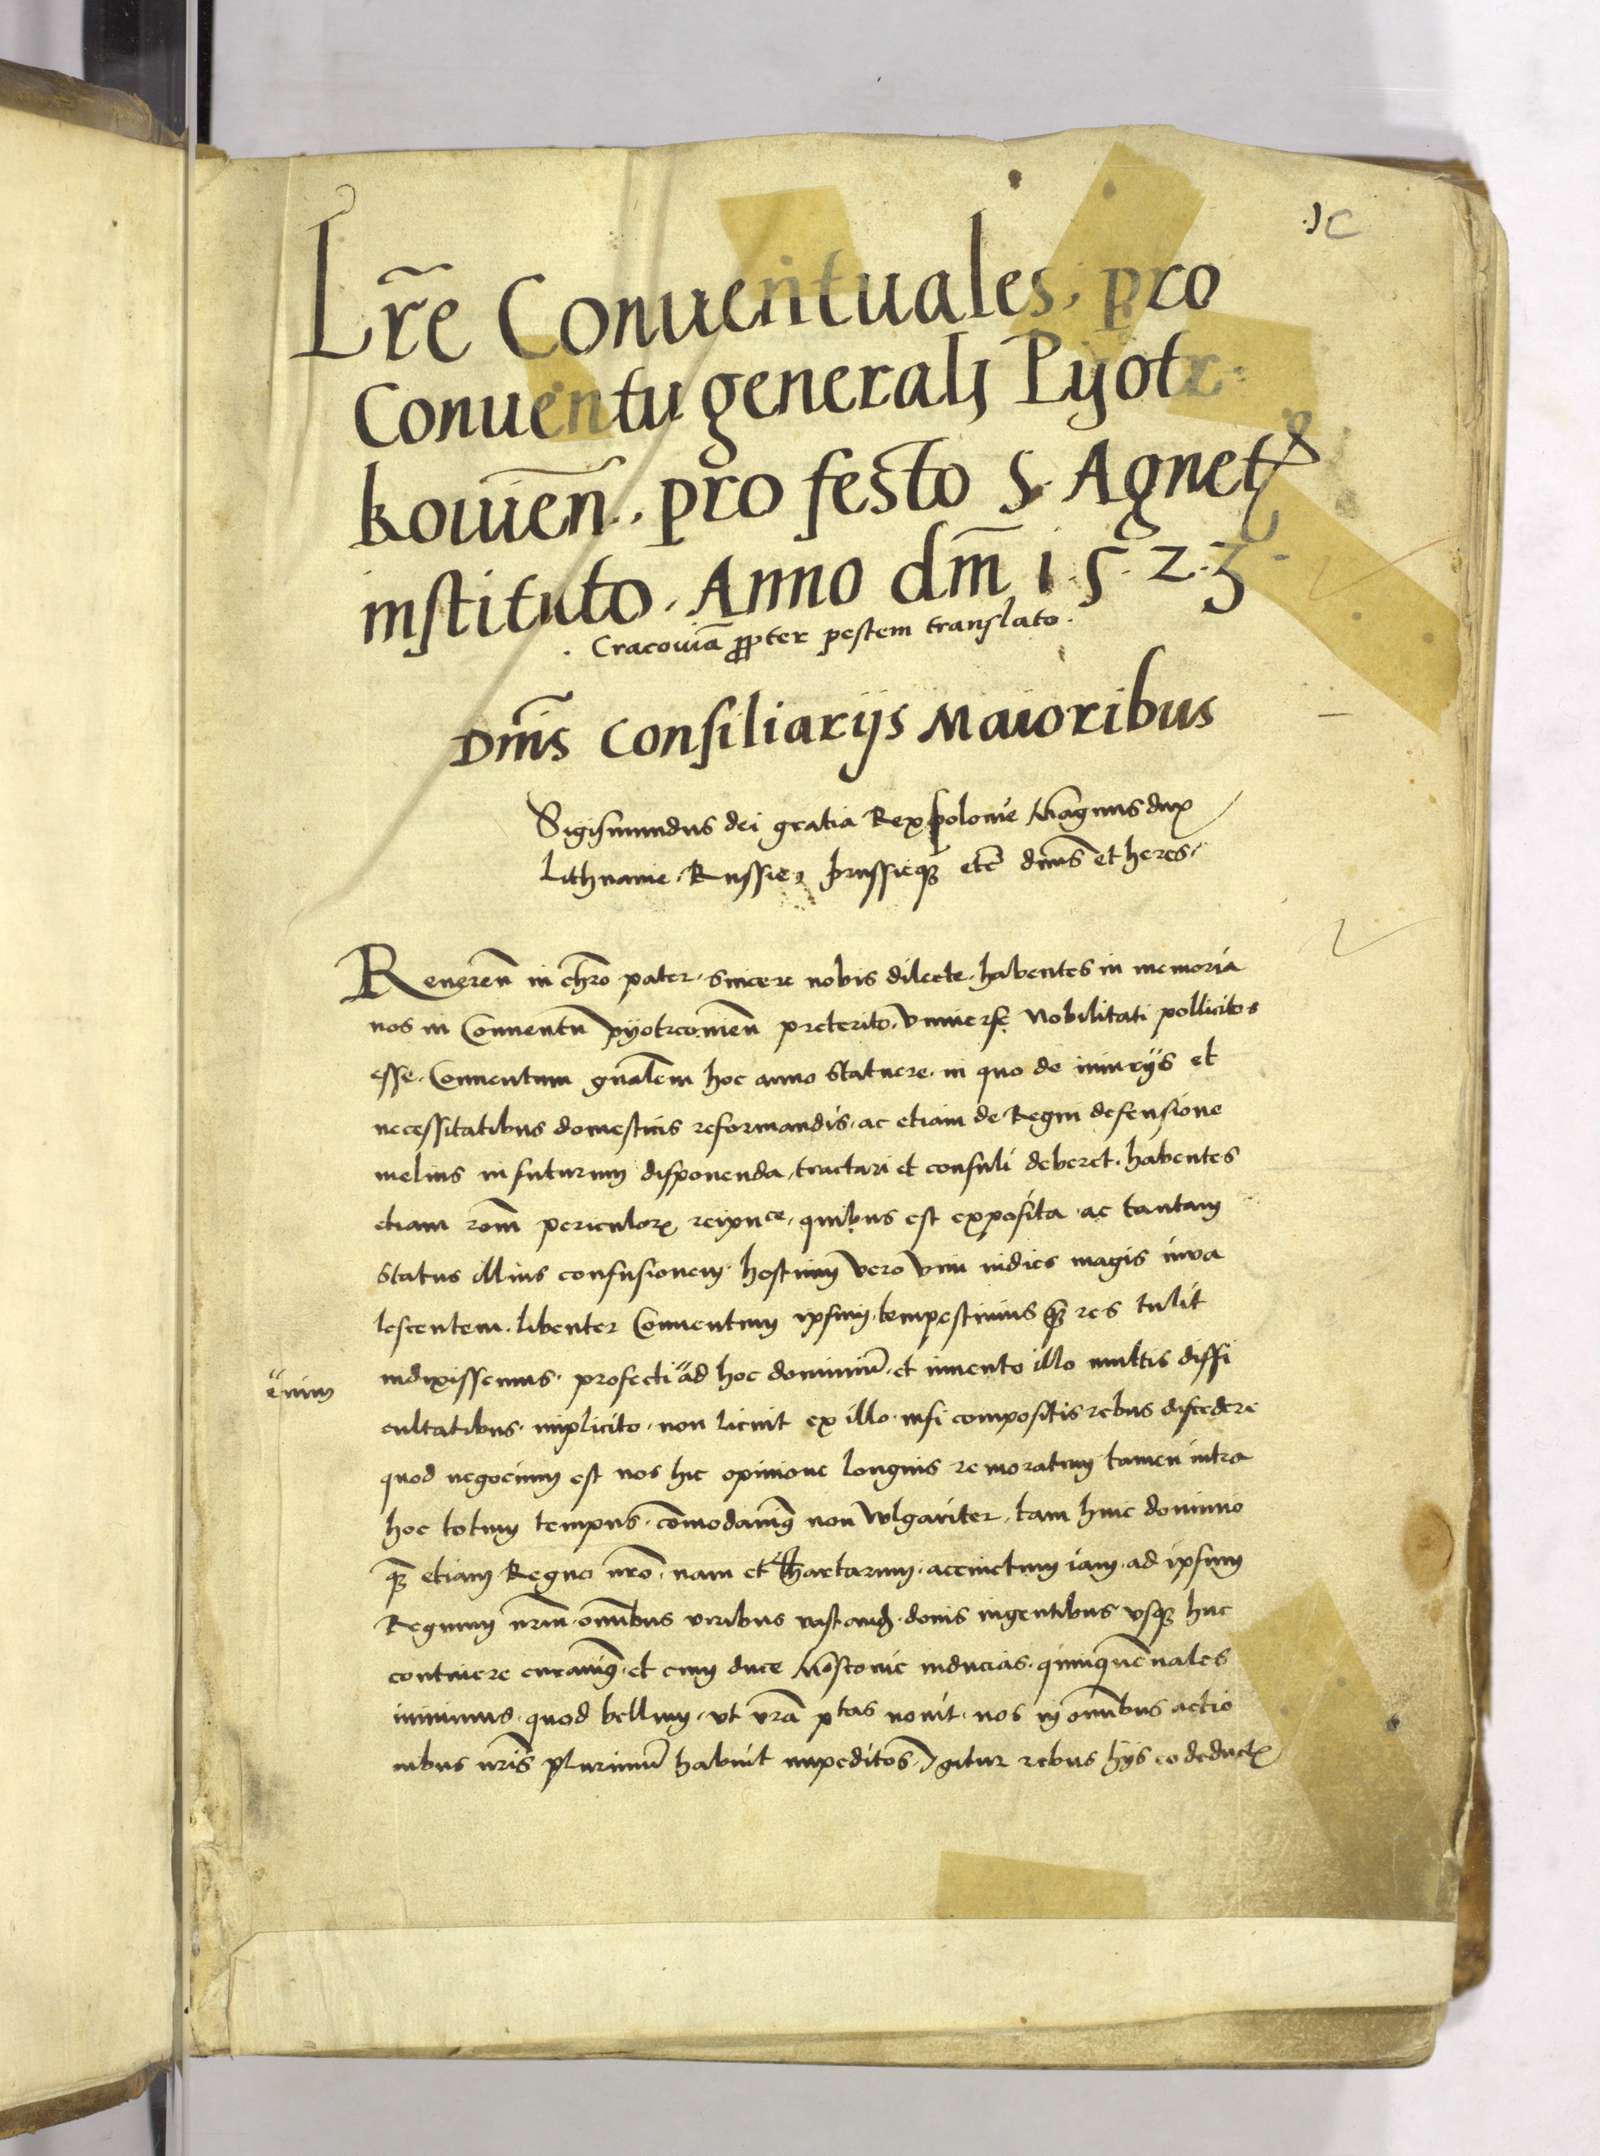 Lr̃e Conuentuales, pro
Conuentu generalj Pyotr:
kowieñ, pro festo S. Agnet
instituto. Anno dm̃ 1.5.2.3.
. Cracouiã propter pestem translato.
Dnĩs Consiliarijs Maioribus
Sigismundus dei gratia Rex polonie Magnus dux
Lithuanie, Russie, prussieque etc̃ dnũs et heres.
Reueren̄ in chrō pater, sincere nobis dilecte, habentes in memoria
nos in Conuentu pyotrconien̄ preterito, vniuerse Nobilitati pollicitos
esse, Conuentum gn̄alem hoc anno statuere, in quo de iniurijs et
necessitatibus domesticis reformandis, ac etiam de Regni defensione
melius in futurum disponenda, tractari et consuli deberet, habentes
etiam rōm periculorꝝ reipuce, quibus est exposita ac tantam
status illius confusionem, hostium vero vim indies magis inua
lescentem, libenter Conuentum ipsum, tempestiuius qꝫ res tulit
indixissemus. profecti " ad hoc dominiū, et inuento illo multis diffi
" enim
cultatibus, implicito, non licuit ex illo, nisi compositis rebus discedere
quod negocium est nos hic opinione longius remoratum tamen intra
hoc totum tempus, cōmodauimꝰ non vulgariter, tam huic dominio
qꝫ etiam Regno nrō, nam et Thartarum, accinctum iam, ad ipsum
Regnum nrm̄, omībus viribus vastand, donis ingentibus vsqꝫ huc
continere curauimꝰ, et cum duce Moscouie inducias, quinquēnales
iniuimus, quod bellum, vt vrã ptas nouit, nos in omībus actio
nibus nrīs plurimū habuit impeditos, Igitur rebus hijs eo deductꝭ